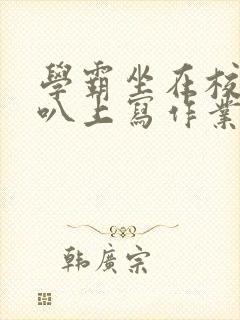 學霸坐在校
叭上寫作業
韓廣宗